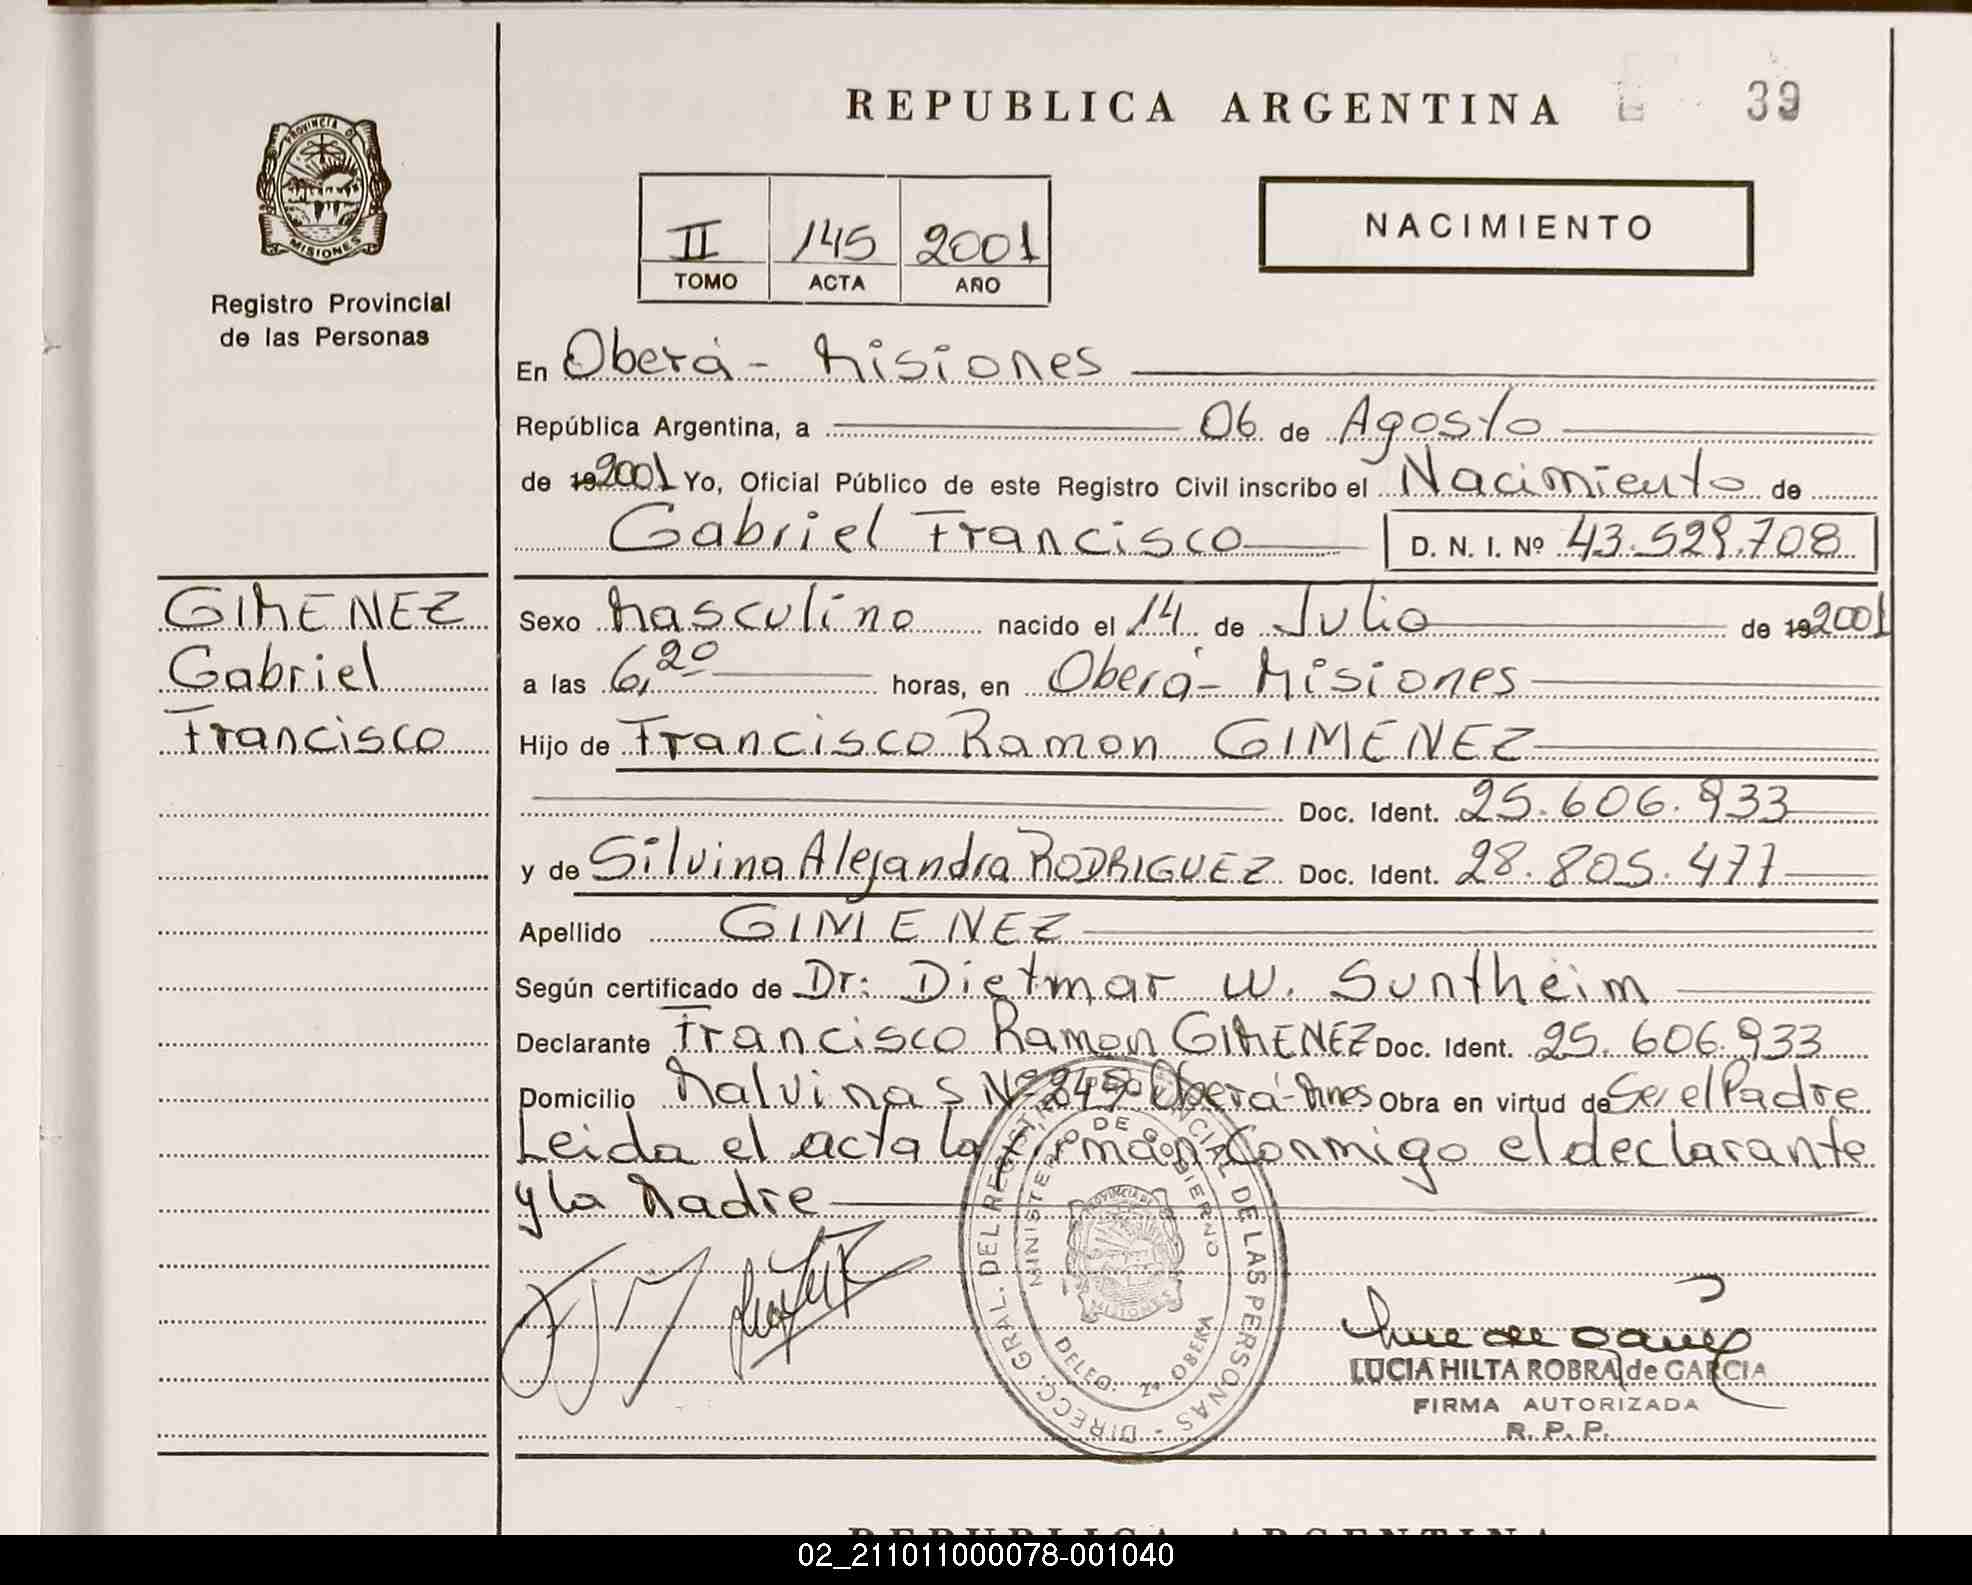 REPUBLICA ARGENTINA
39
PROVINCIA DE
MISIONES
Registro Provincial
de las Personas
II 145 2001
TOMO ACTA AÑO
NACIMIENTO
En Oberá - Misiones
República Argentina, a 06 de Agosto
de 19 2001 Yo, Oficial Público de este Registro Civil inscribo el Nacimiento de
Gabriel Francisco D. N. I. Nº 43.529.708
GIMENEZ
Gabriel
Francisco
Sexo Masculino nacido el 14 de Julio de 19 2001
a las 6,20 horas, en Oberá - Misiones
Hijo de Francisco Ramon GIMENEZ
Doc. Ident. 25.606.933
y de Silvina Alejandra RODRIGUEZ Doc. Ident. 28.805.477
Apellido GIMENEZ
Según certificado de Dr: Dietmar W. Suntheim
Declarante Francisco Ramon GIMENEZ Doc. Ident. 25.606.933
Domicilio Malvinas Nº 845 Oberá - Mnes Obra en virtud de Ser el Padre
Leida el acta la firman Conmigo el declarante
y la Madre
DIRECC. GRAL. DEL REGISTRO PROVINCIAL DE LAS PERSONAS
MINISTERIO DE GOBIERNO
PROVINCIA DE
MISIONES
DELEG. OBERA
LUCIA HILTA ROBRA de GARCIA
FIRMA AUTORIZADA
R. P. P.
REPUBLICA ARGENTINA
02_211011000078-001040